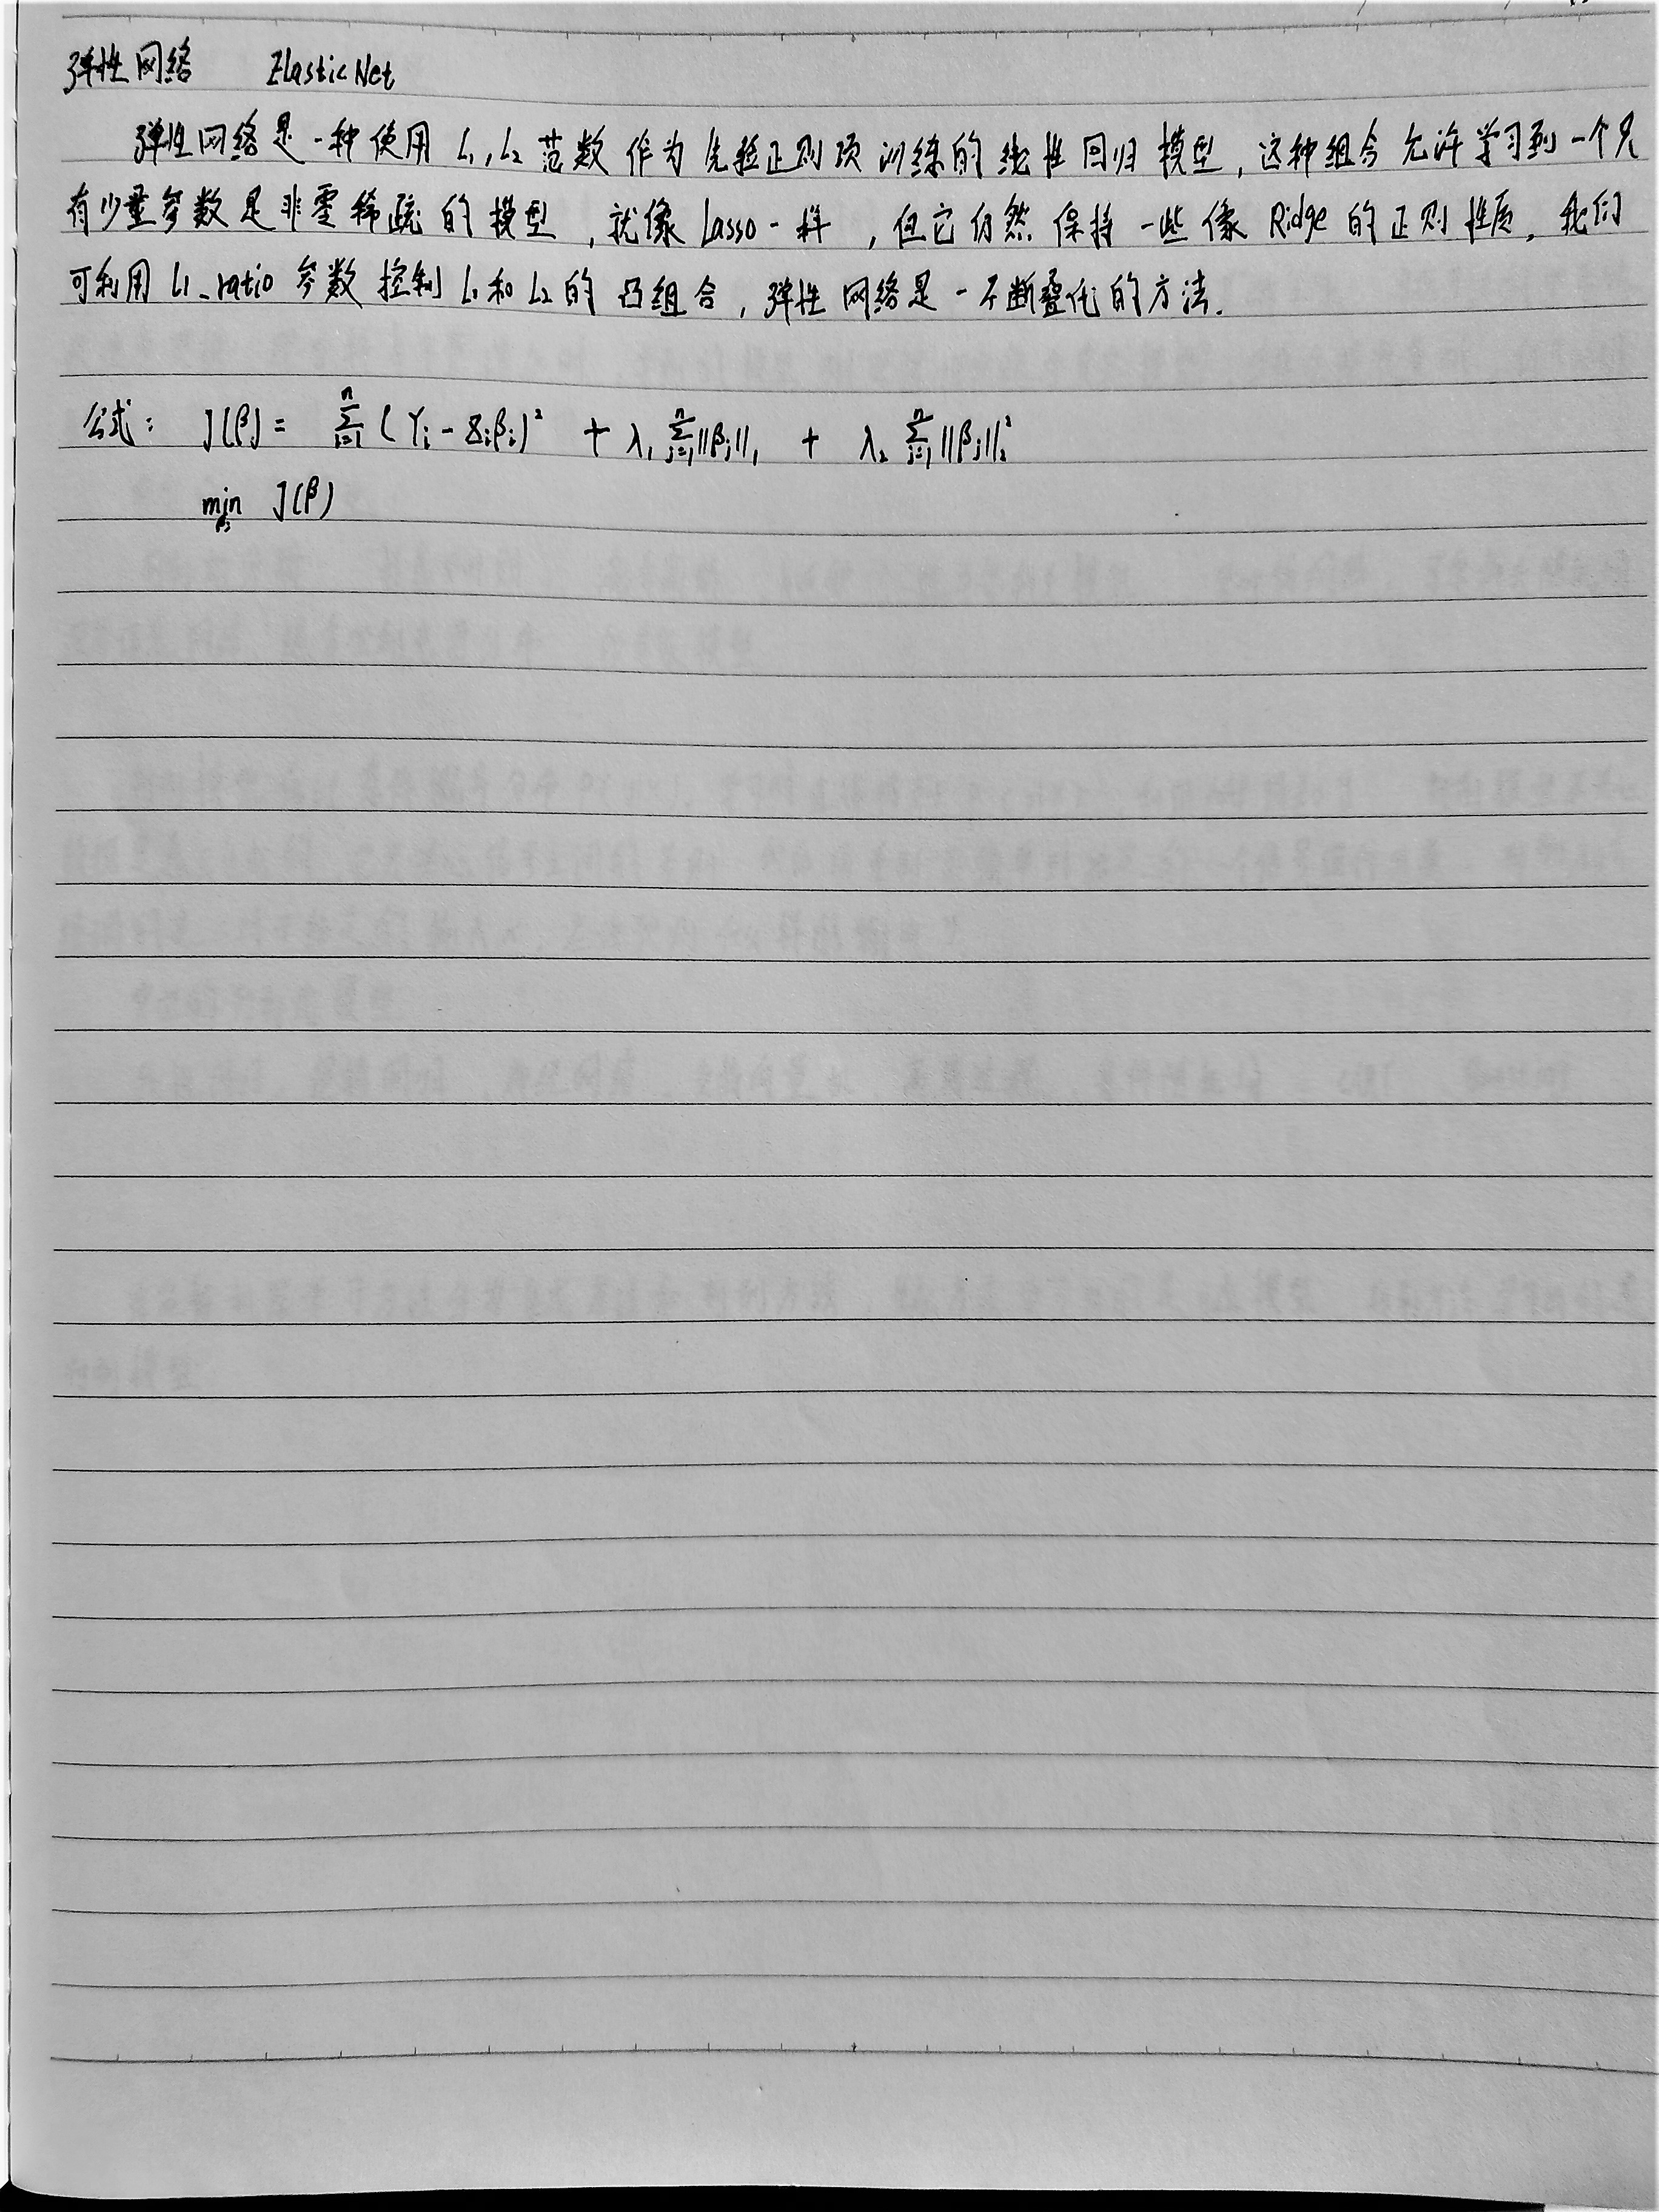 弹性网络 ElasticNet
弹性网络是一种使用 L₁,L₂ 范数作为先验正则项训练的线性回归模型,这种组合允许学习到一个只
有少量参数是非零稀疏的模型,就像 Lasso一样,但它仍然保持一些像 Ridge 的正则性质,我们
可利用 L1_ratio 参数控制 L₁和L₂的凸组合,弹性网络是一不断叠代的方法.
公式: J(β) = Σⁿᵢ₌₁(Yᵢ - Xᵢβᵢ)² + λ₁ Σⁿⱼ₌₁||βⱼ||₁ + λ₂ Σⁿⱼ₌₁||βⱼ||₂²
min J(β)